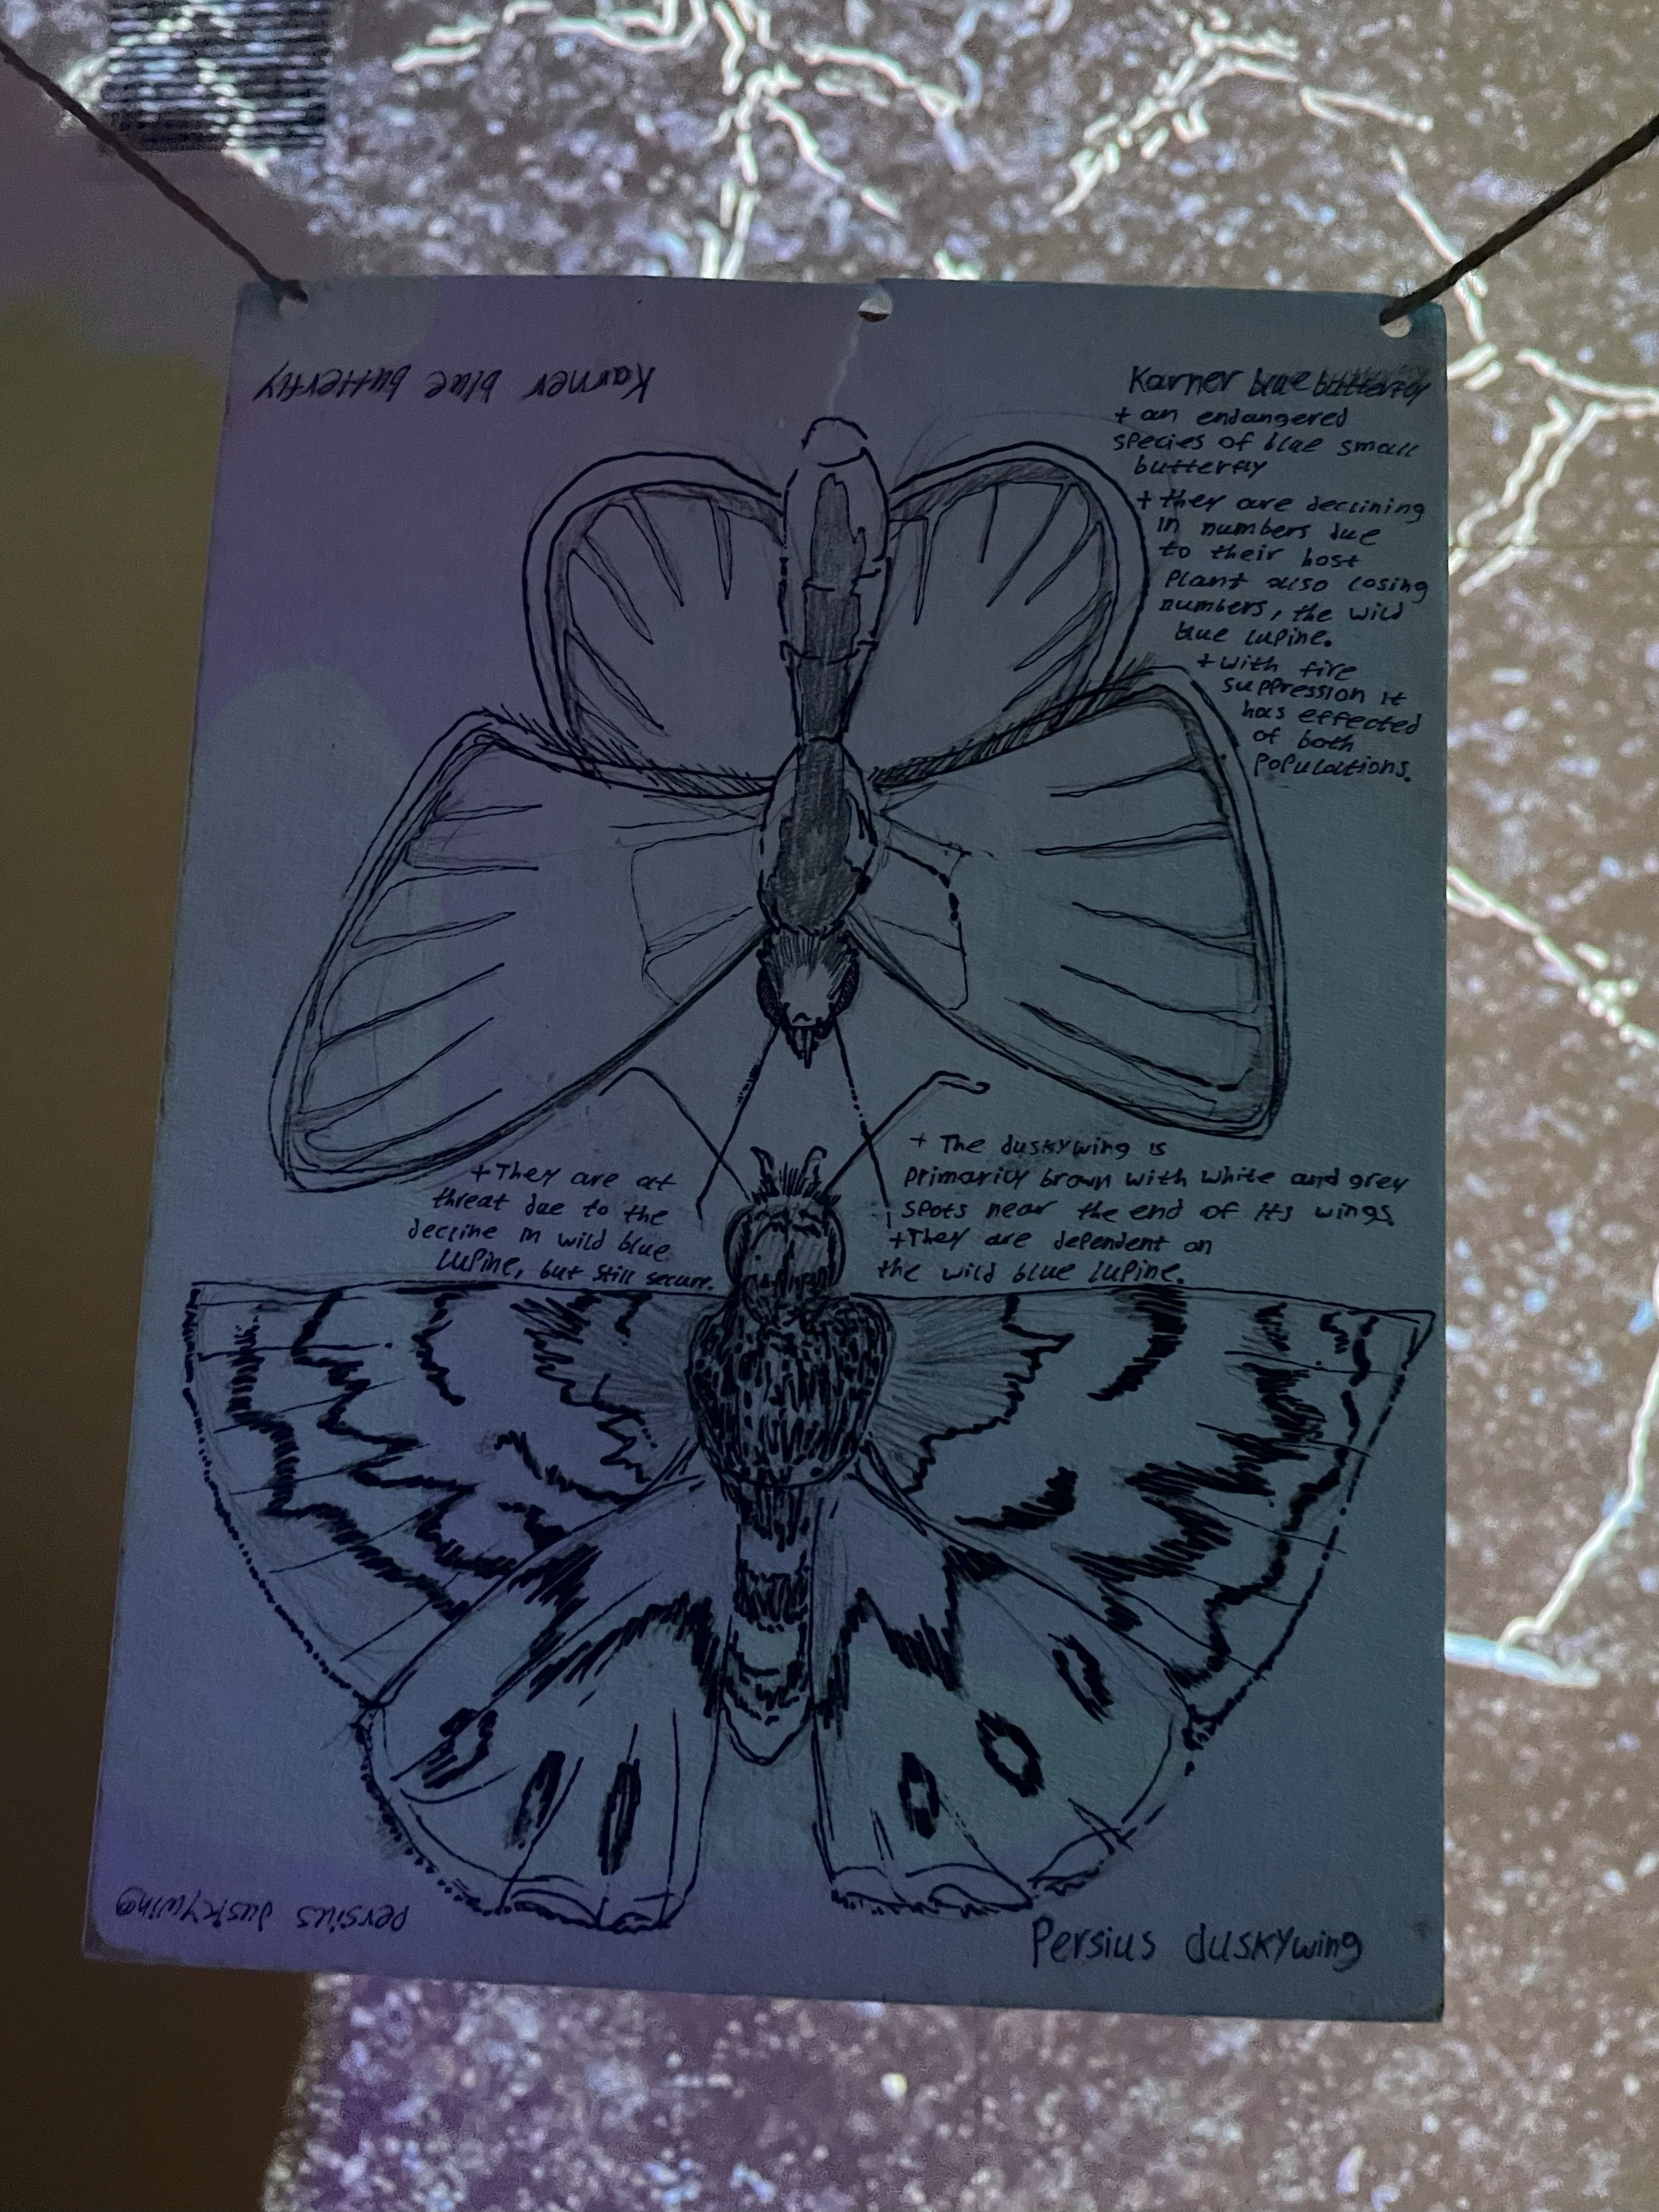 Karner blue butterfly
Karner blue butterfly
+ an endangered
species of blue small
butterfly
+ they are declining
in numbers due
to their host
plant also losing
numbers, the wild
blue lupine.
+ with fire
suppression it
has effected
of both
populations.
+ They are at
threat due to the
decline in wild blue
lupine, but still secure.
+ The duskywing is
primarily brown with white and grey
spots near the end of its wings
+ They are dependent on
the wild blue lupine.
Persius duskywing
Persius duskywing